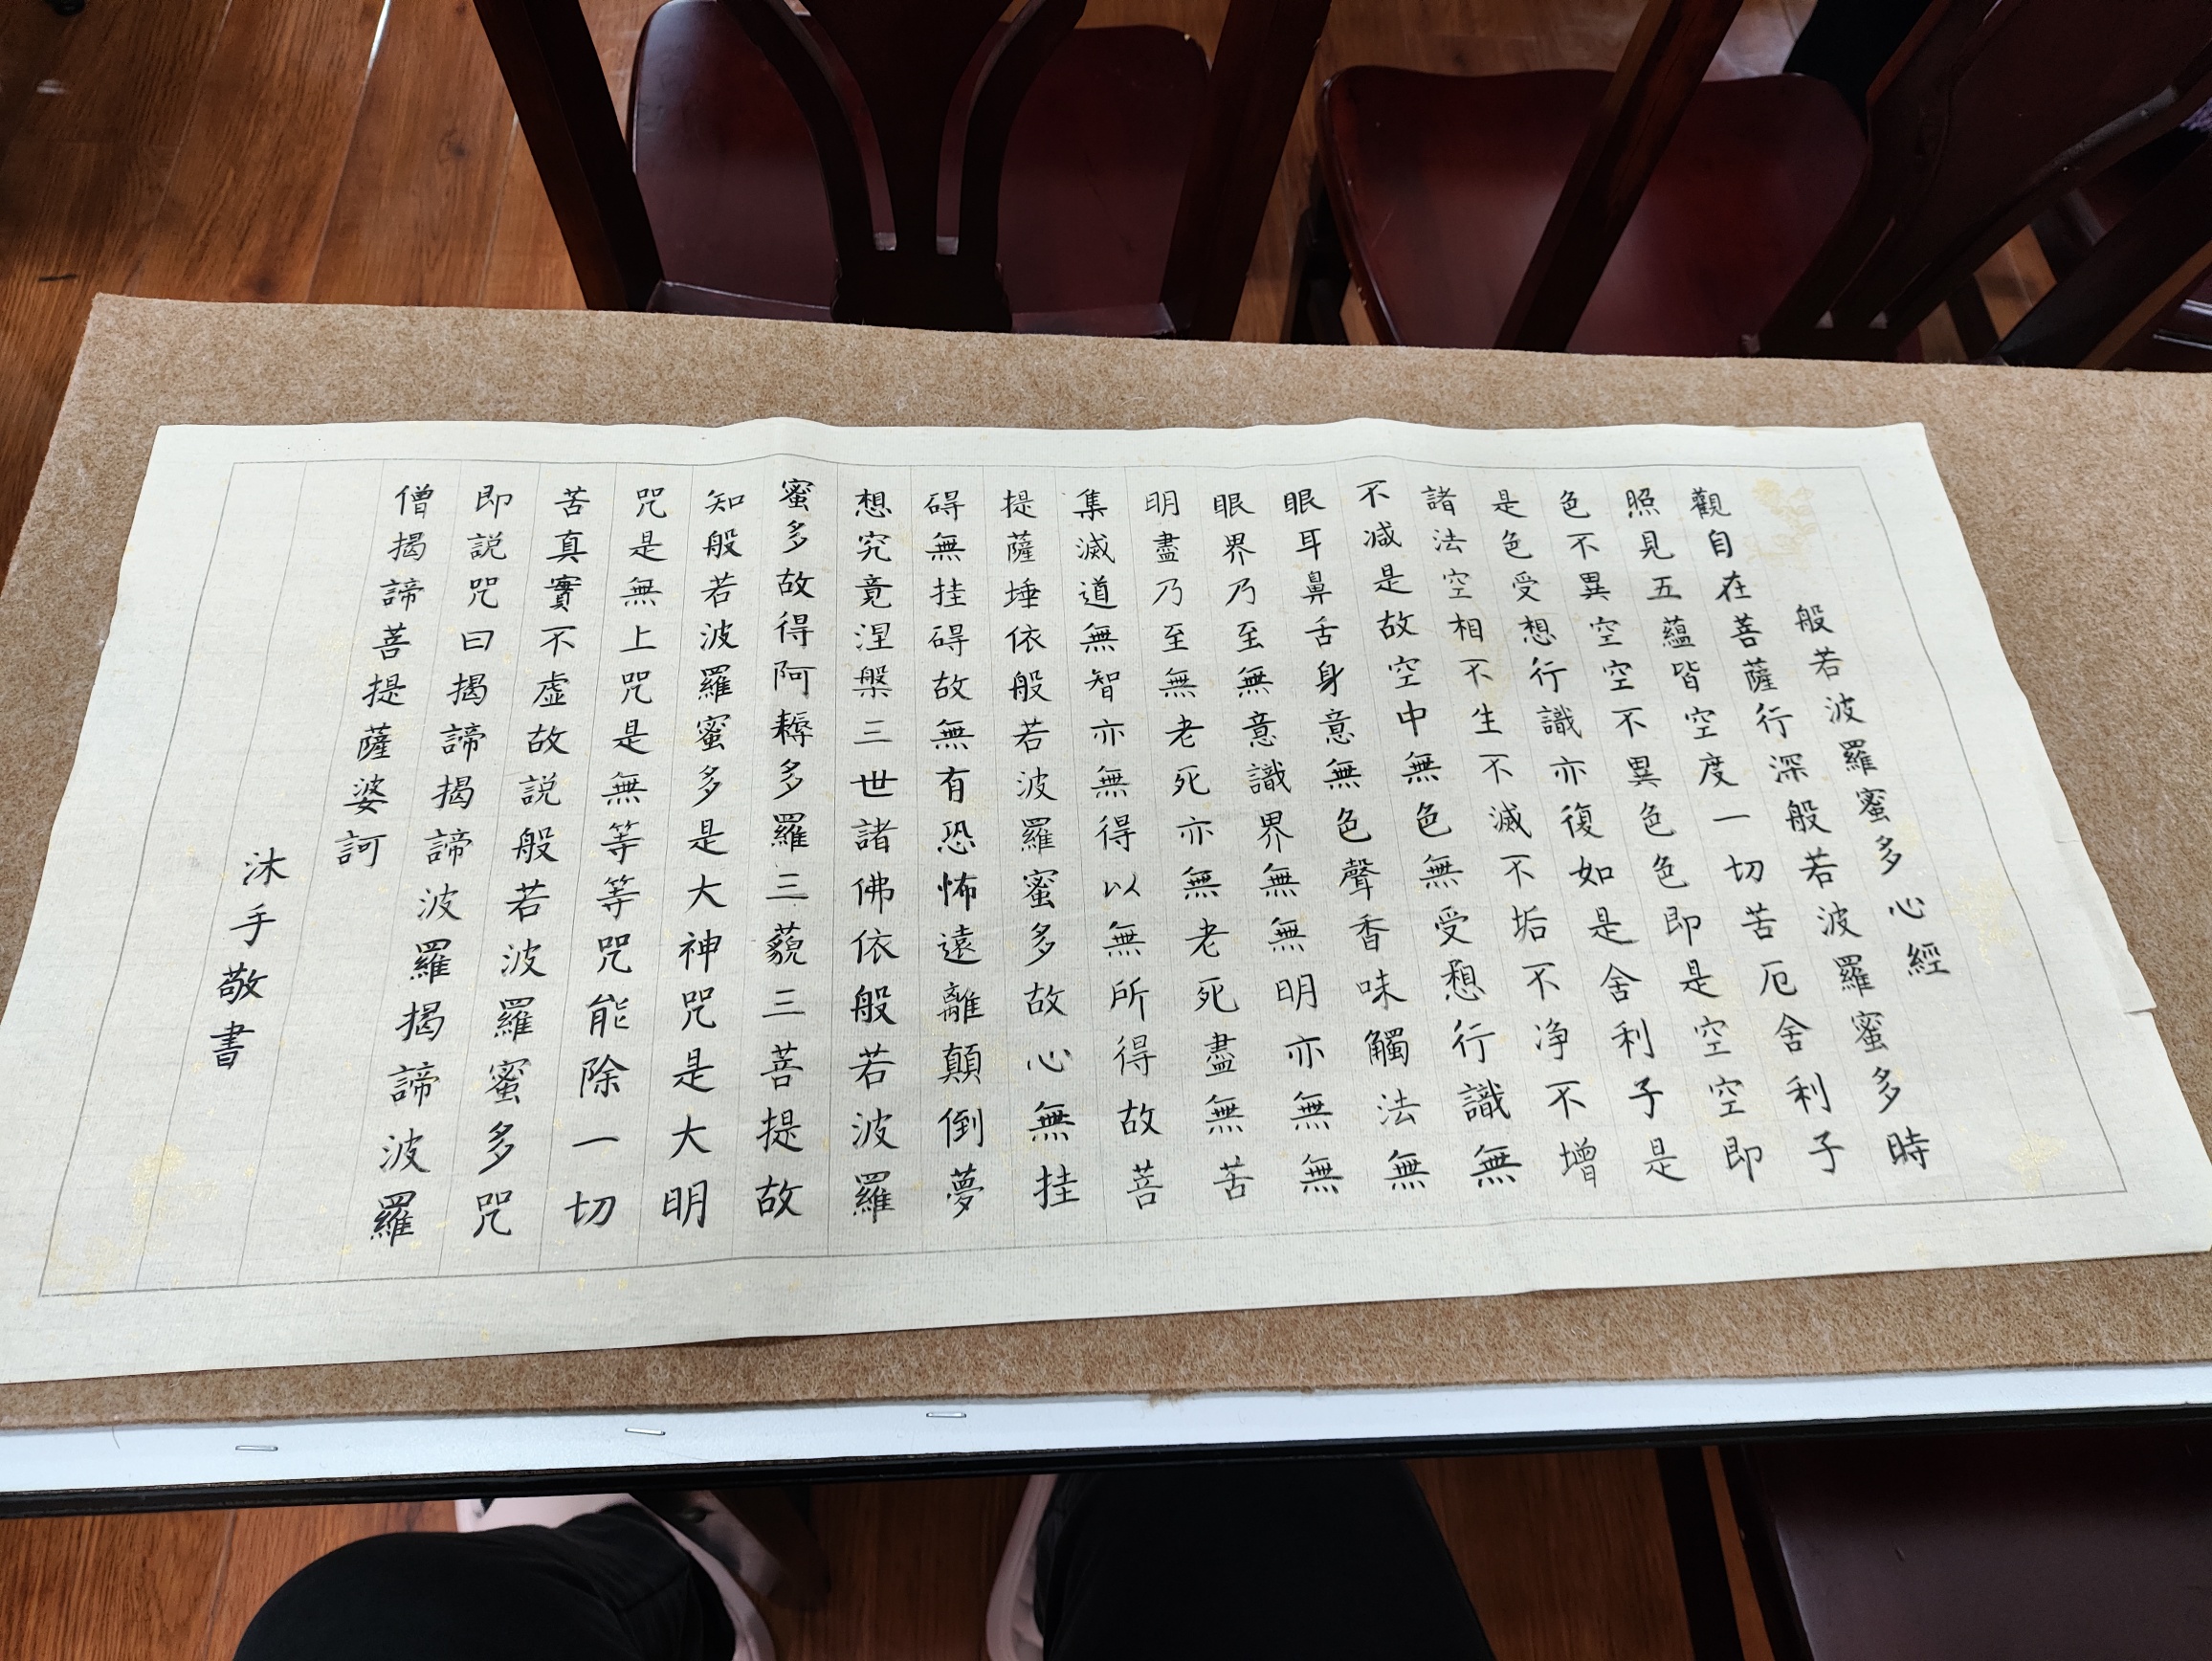 般若波羅蜜多心經
觀自在菩薩行深般若波羅蜜多時
照見五蘊皆空度一切苦厄舍利子
色不異空空不異色色即是空空即
是色受想行識亦復如是舍利子是
諸法空相不生不滅不垢不净不增
不减是故空中無色無受想行識無
眼耳鼻舌身意無色聲香味觸法無
眼界乃至無意識界無無明亦無無
明盡乃至無老死亦無老死盡無苦
集滅道無智亦無得以無所得故菩
提薩埵依般若波羅蜜多故心無挂
碍無挂碍故無有恐怖遠離顛倒夢
想究竟涅槃三世諸佛依般若波羅
蜜多故得阿耨多羅三藐三菩提故
知般若波羅蜜多是大神咒是大明
咒是無上咒是無等等咒能除一切
苦真實不虛故説般若波羅蜜多咒
即説咒曰揭諦揭諦波羅揭諦波羅
僧揭諦菩提薩婆訶
沐手敬書